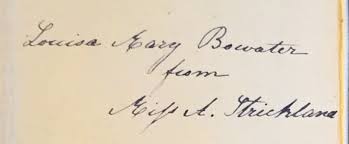 Louisa Mary Bowater
from
Miſs A. Strickland